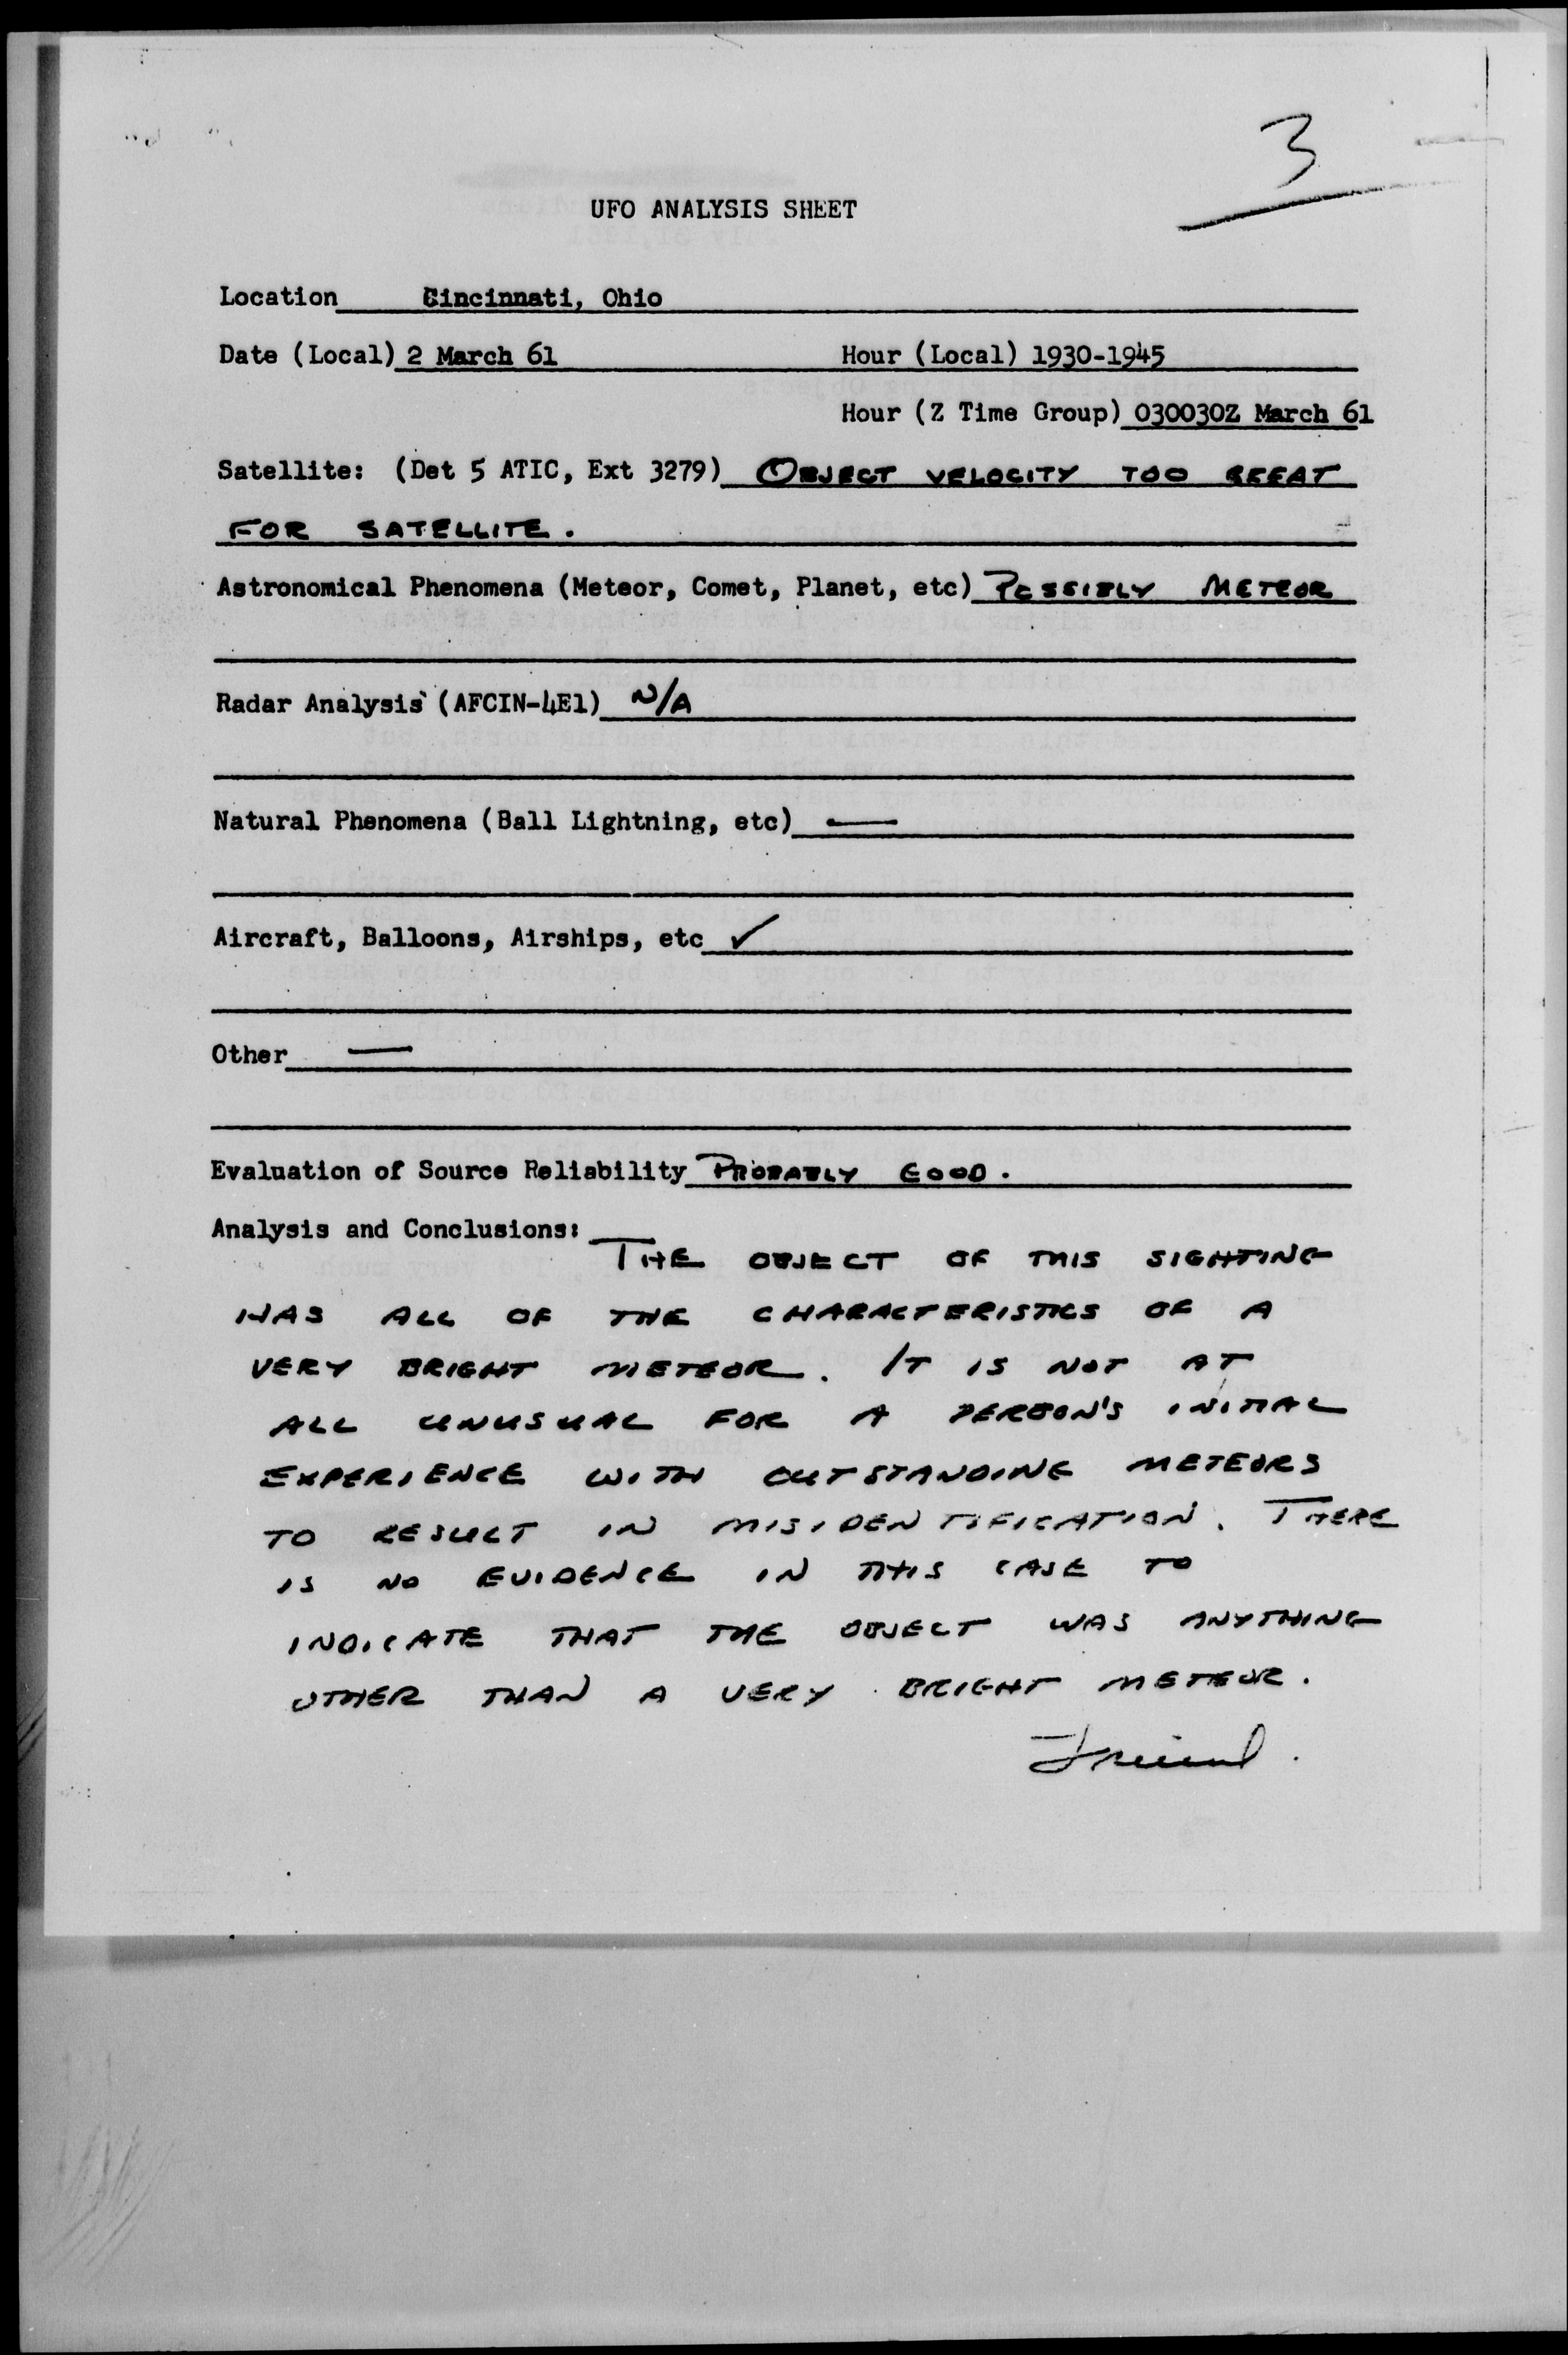 3
UFO ANALYSIS SHEET
Location Cincinnati, Ohio
Date (Local) 2 March 61 Hour (Local) 1930-1945
Hour (Z Time Group) 030030Z March 61
Satellite: (Det 5 ATIC, Ext 3279) OBJECT VELOCITY TOO GREAT
FOR SATELLITE.
Astronomical Phenomena (Meteor, Comet, Planet, etc) POSSIBLY METEOR
Radar Analysis (AFCIN-4E1) N/A
Natural Phenomena (Ball Lightning, etc) —
Aircraft, Balloons, Airships, etc ✓
Other —
Evaluation of Source Reliability PROBABLY GOOD.
Analysis and Conclusions: THE OBJECT OF THIS SIGHTING
HAS ALL OF THE CHARACTERISTICS OF A
VERY BRIGHT METEOR. IT IS NOT AT
ALL UNUSUAL FOR A PERSON'S INITIAL
EXPERIENCE WITH OUTSTANDING METEORS
TO RESULT IN MISIDENTIFICATION. THERE
IS NO EVIDENCE IN THIS CASE TO
INDICATE THAT THE OBJECT WAS ANYTHING
OTHER THAN A VERY BRIGHT METEOR.
Friend.